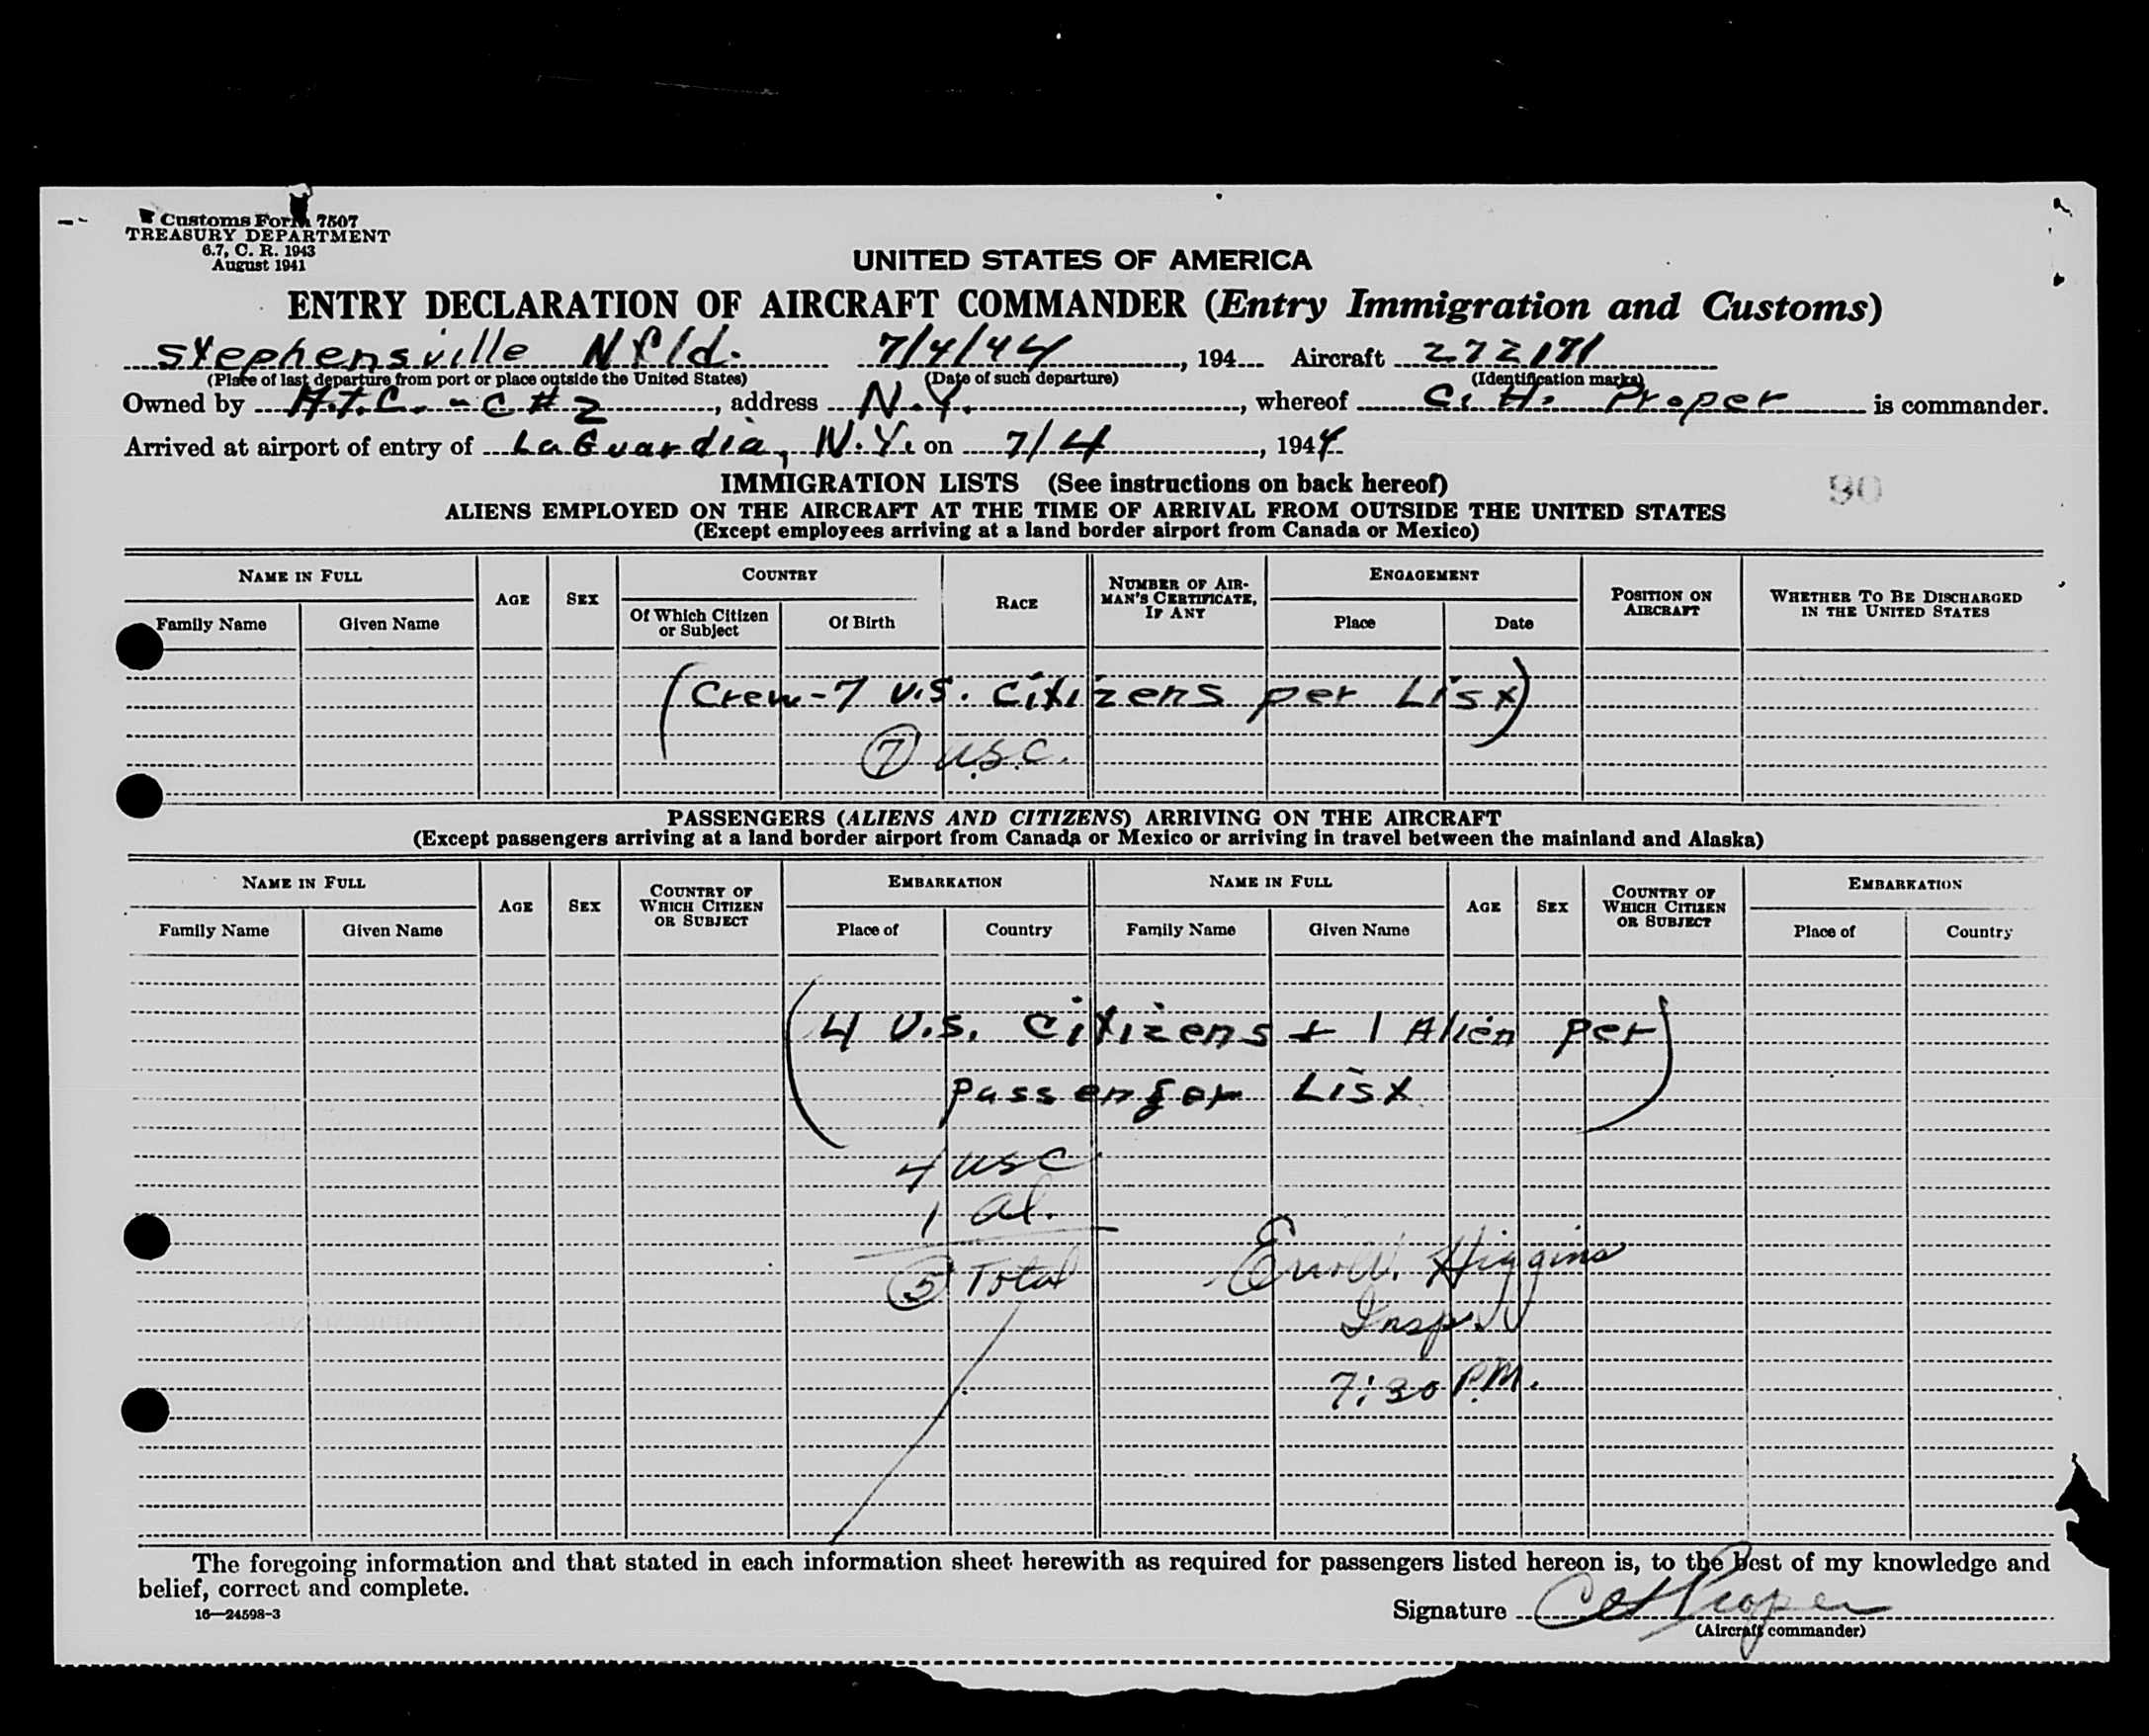 Customs Form 7507
TREASURY DEPARTMENT
6.7, C. R. 1943
August 1941
UNITED STATES OF AMERICA
ENTRY DECLARATION OF AIRCRAFT COMMANDER (Entry Immigration and Customs)
Stephensville Nfld. 7/4/44, 194 Aircraft 272171
(Place of last departure from port or place outside the United States) (Date of such departure) (Identification marks)
Owned by A.T.C. - C # 2, address N.Y., whereof C. H. Proper is commander.
Arrived at airport of entry of LaGuardia, N.Y. on 7/4, 1944
IMMIGRATION LISTS (See instructions on back hereof)
90
ALIENS EMPLOYED ON THE AIRCRAFT AT THE TIME OF ARRIVAL FROM OUTSIDE THE UNITED STATES
(Except employees arriving at a land border airport from Canada or Mexico)
NAME IN FULL AGE SEX COUNTRY RACE NUMBER OF AIRMAN'S CERTIFICATE, IF ANY ENGAGEMENT POSITION ON AIRCRAFT WHETHER TO BE DISCHARGED IN THE UNITED STATES
Family Name Given Name Of Which Citizen or Subject Of Birth Place Date
(Crew - 7 U.S. Citizens per List)
7 U.S.C.
PASSENGERS (ALIENS AND CITIZENS) ARRIVING ON THE AIRCRAFT
(Except passengers arriving at a land border airport from Canada or Mexico or arriving in travel between the mainland and Alaska)
NAME IN FULL AGE SEX COUNTRY OF WHICH CITIZEN OR SUBJECT EMBARKATION NAME IN FULL AGE SEX COUNTRY OF WHICH CITIZEN OR SUBJECT EMBARKATION
Family Name Given Name Place of Country Family Name Given Name Place of Country
(4 U.S. Citizens + 1 Alien per
Passenger List)
4 USC
1 al.
5 Total
W. Higgins
Insp.
7:30 P.M.
The foregoing information and that stated in each information sheet herewith as required for passengers listed hereon is, to the best of my knowledge and
belief, correct and complete.
16—24598-3
Signature C H Proper
(Aircraft commander)